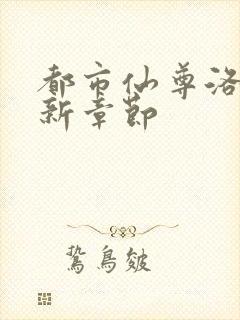 都市仙尊洛
新章节
鸷鸟皴